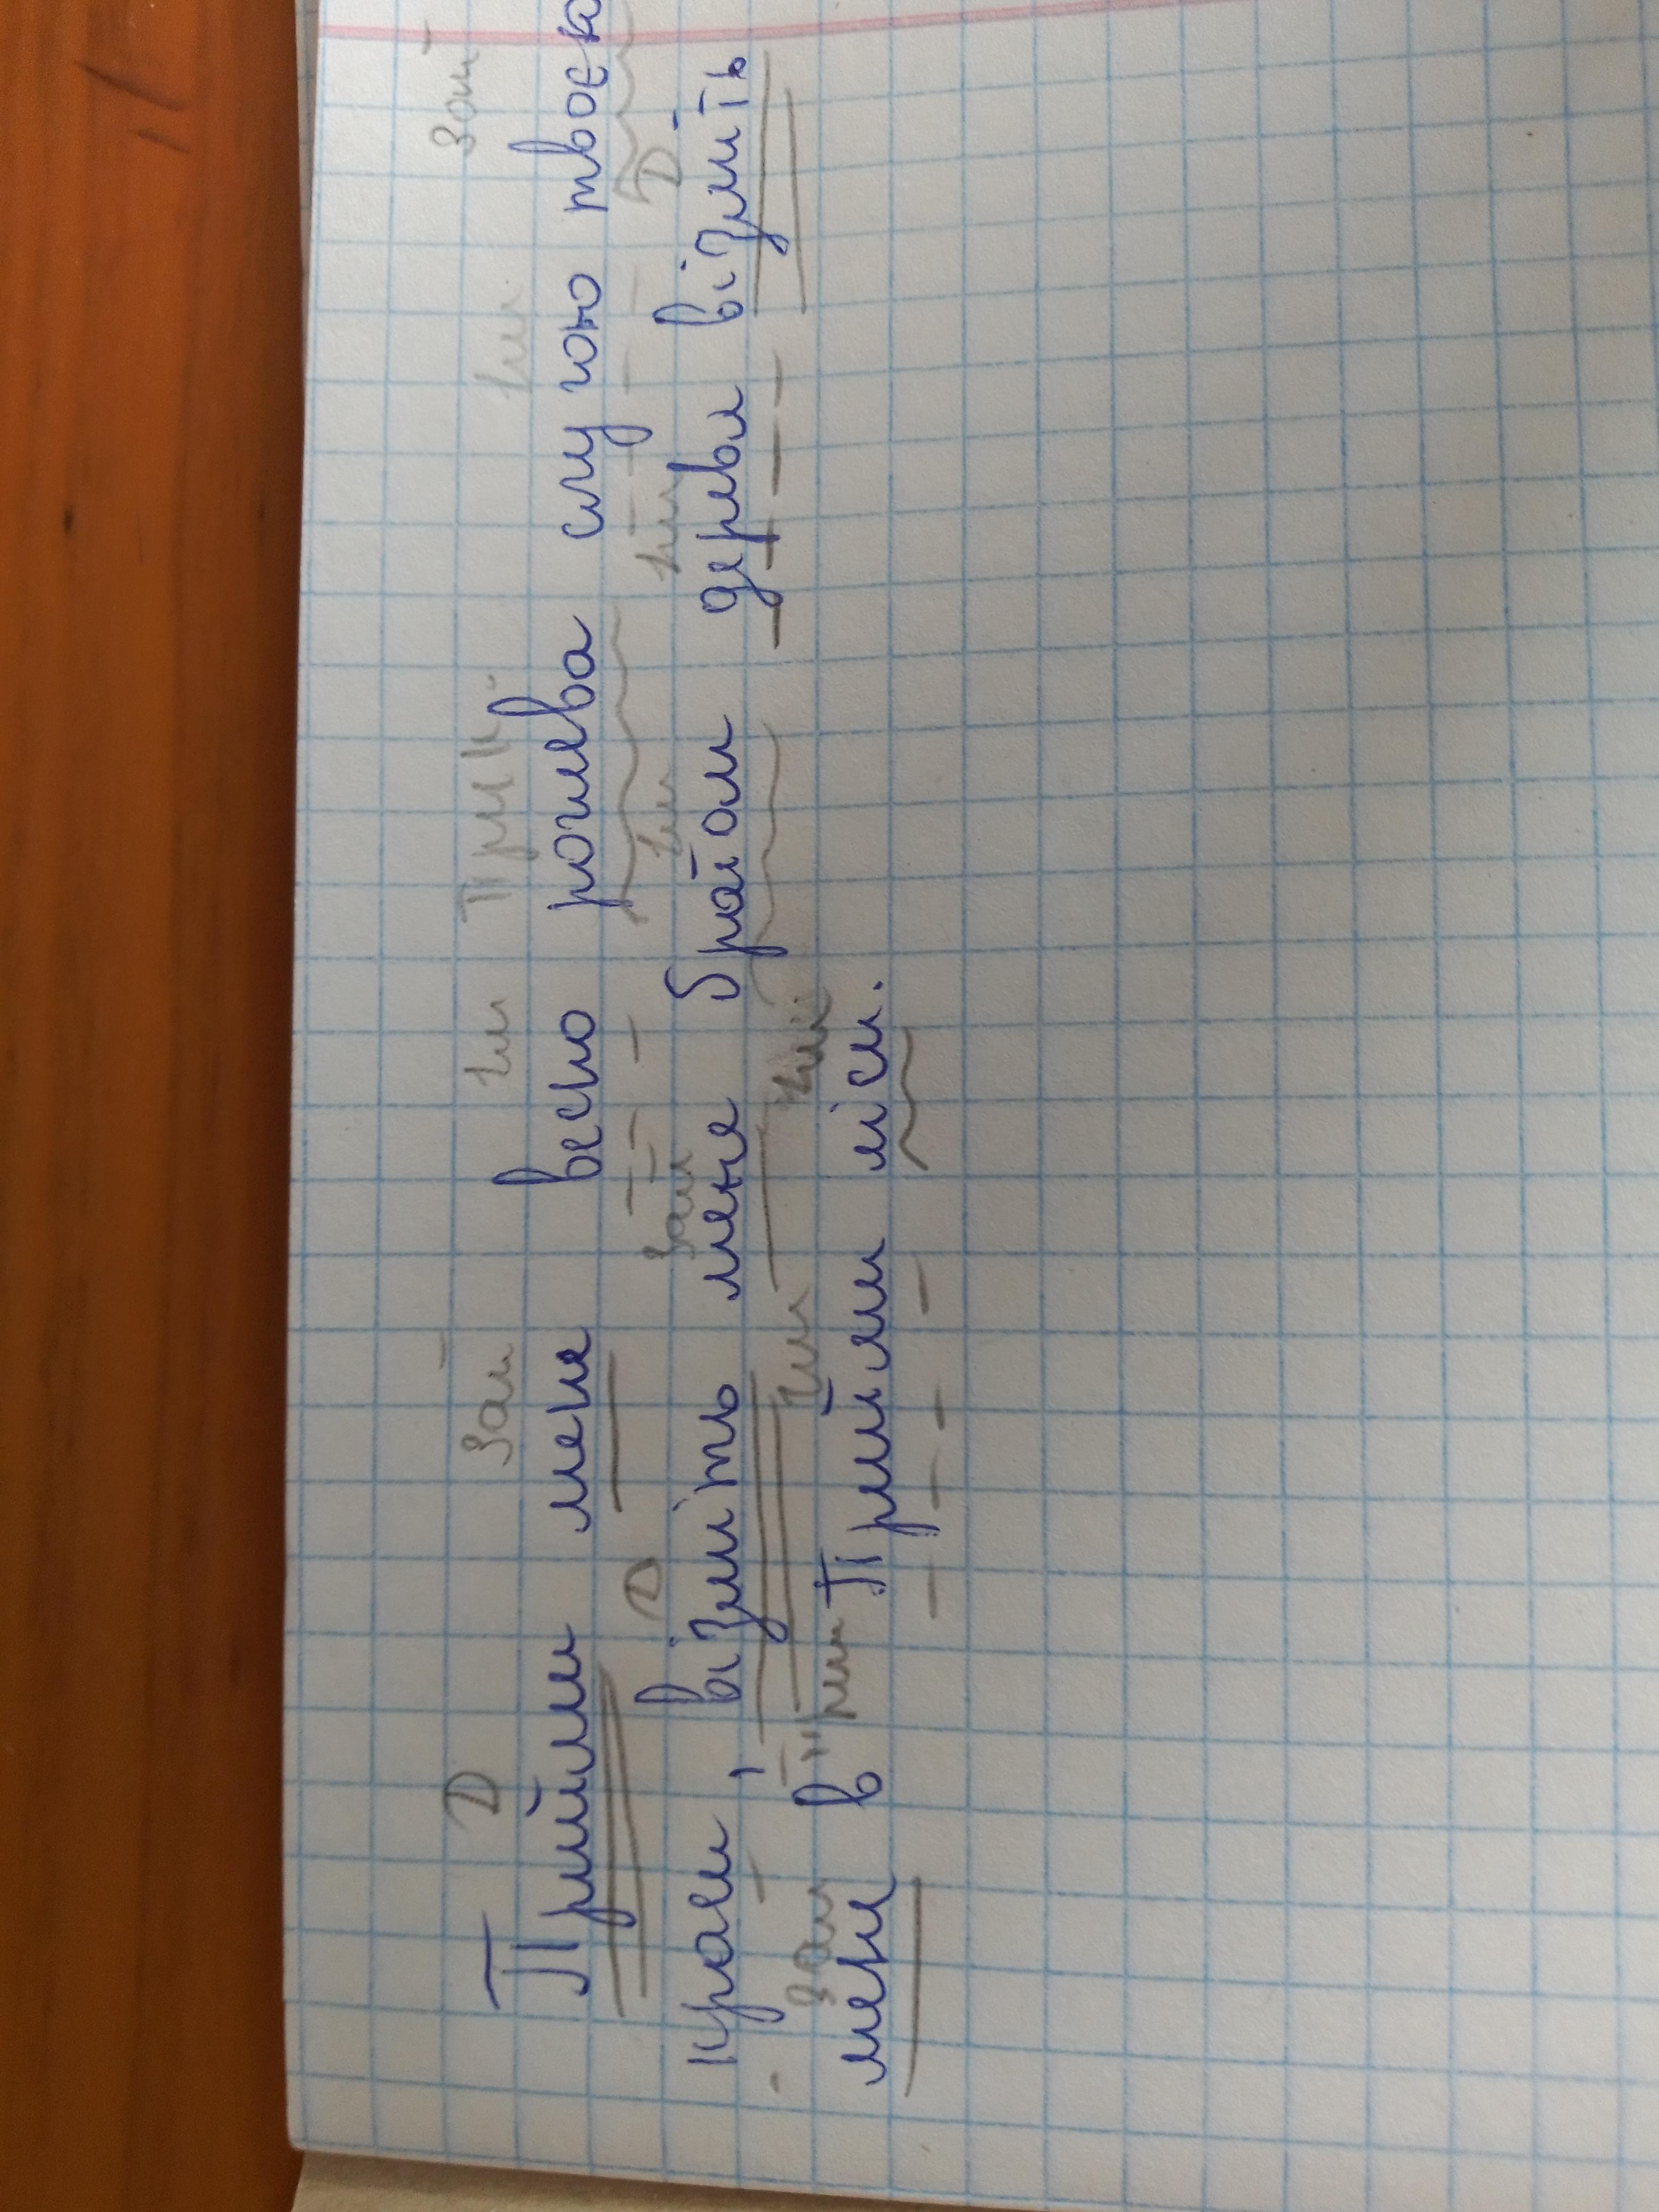 Д Зай Ім Прик. Ім Зай
Прийми мене весно рожева слугою
Д Зай Ім Ім Д
краси, візміть мене братом дерева візміть
Зай Ім Ім
мене в Прийми ліси.